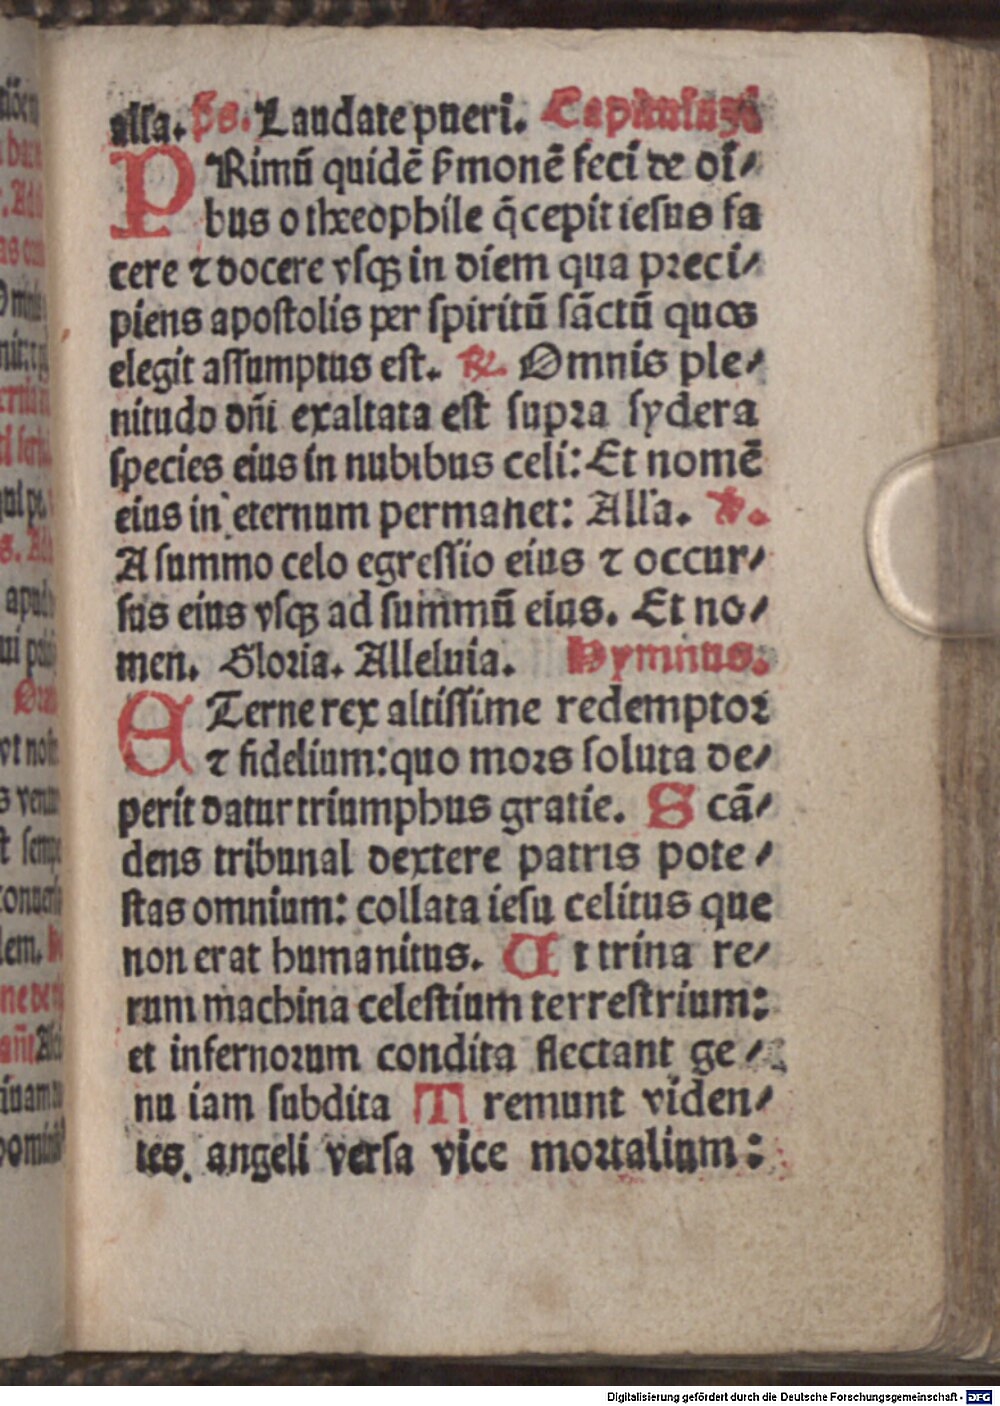 alla. ps. Laudate pueri. Capitulum
PRimū quidē ẜmonē feci de oī⸗
bus o theophile q̄ cepit iesus fa
cere ⁊ docere vsqꝫ in diem qua preci⸗
piens apostolis per spiritū sāctū quos
elegit assumptus est. ℟. Omnis ple⸗
nitudo dñi exaltata est supra sydera
species eius in nubibus celi: Et nomē
eius in eternum permanet: Alla. ℣.
A summo celo egressio eius ⁊ occur⸗
sus eius vsqꝫ ad summū eius. Et no⸗
men. Gloria. Alleluia. Hymnus.
ETerne rex altissime redemptor
⁊ fidelium: quo mors soluta de⸗
perit datur triumphus gratie. Scā⸗
dens tribunal dextere patris pote⸗
stas omnium: collata iesu celitus que
non erat humanitus. Ut trina re⸗
rum machina celestium terrestrium:
et infernorum condita flectant ge⸗
nu iam subdita Tremunt viden⸗
tes angeli versa vice mortalium:
Digitalisierung gefördert durch die Deutsche Forschungsgemeinschaft - DFG